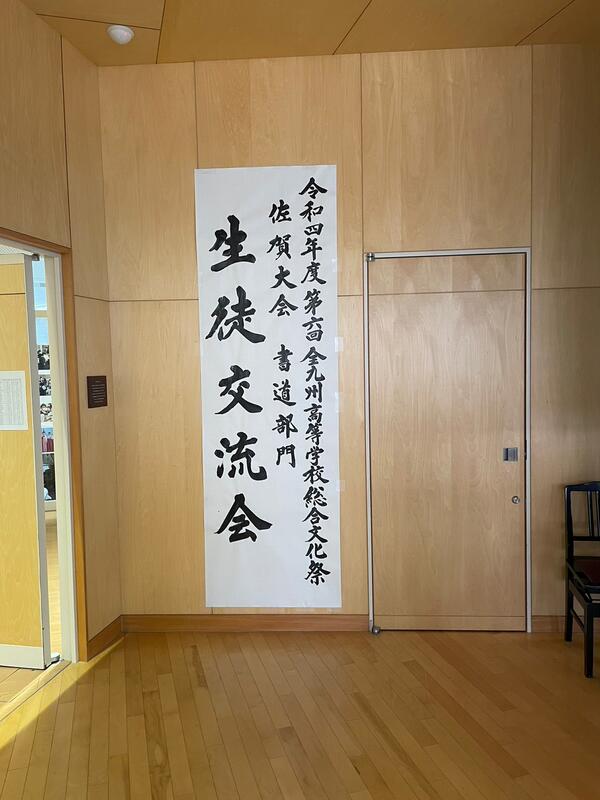 令和四年度第六回全九州高等学校総合文化祭
佐賀大会 書道部門
生徒交流会